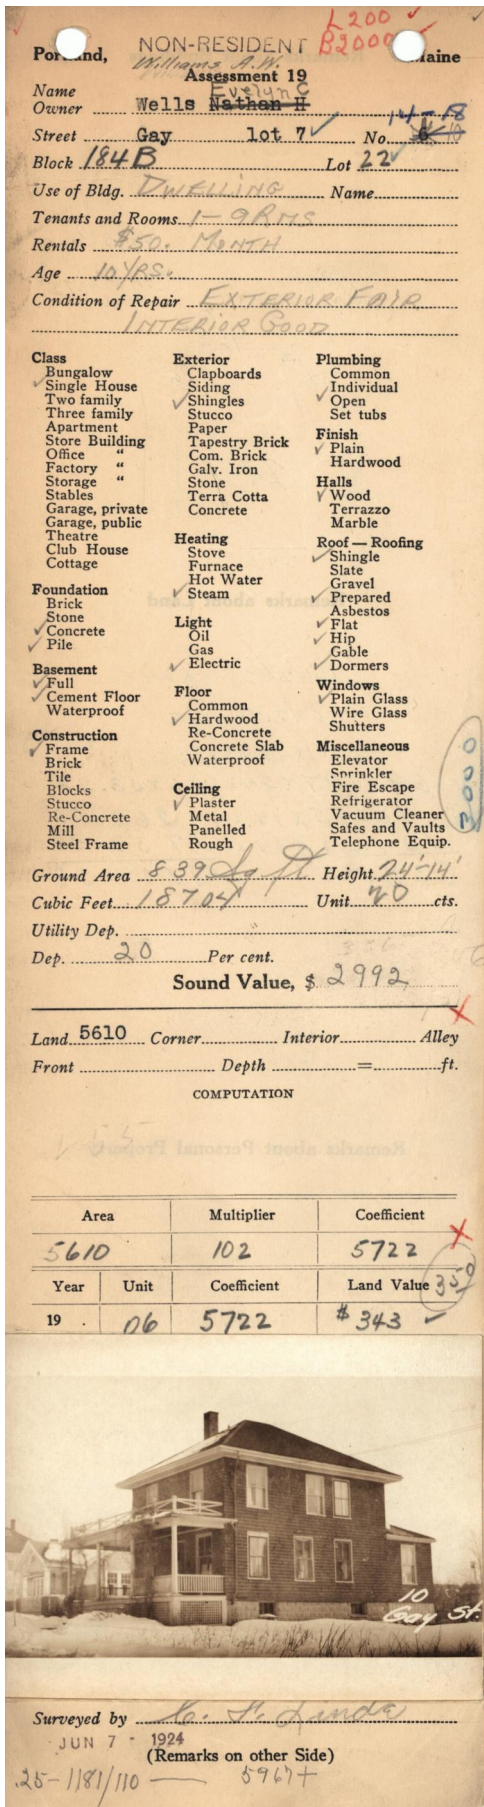 L 200
NON-RESIDENT B 2000
Portland, Maine
Williams A.W.
Assessment 19
Evelyn C
Name
Owner Wells Nathan H
14-18
Street Gay lot 7 No. 10
Block 184B Lot 22
Use of Bldg. DWELLING Name
Tenants and Rooms 1-9 RMS
Rentals $50. MONTH
Age 10 YRS.
Condition of Repair EXTERIOR FAIR
INTERIOR GOOD
Class
Bungalow
✓ Single House
Two family
Three family
Apartment
Store Building
Office "
Factory "
Storage "
Stables
Garage, private
Garage, public
Theatre
Club House
Cottage
Foundation
Brick
Stone
✓ Concrete
✓ Pile
Basement
✓ Full
✓ Cement Floor
Waterproof
Construction
✓ Frame
Brick
Tile
Blocks
Stucco
Re-Concrete
Mill
Steel Frame
Exterior
Clapboards
Siding
✓ Shingles
Stucco
Paper
Tapestry Brick
Com. Brick
Galv. Iron
Stone
Terra Cotta
Concrete
Heating
Stove
Furnace
Hot Water
✓ Steam
Light
Oil
Gas
✓ Electric
Floor
Common
✓ Hardwood
Re-Concrete
Concrete Slab
Waterproof
Ceiling
✓ Plaster
Metal
Panelled
Rough
Plumbing
Common
Individual
✓ Open
Set tubs
Finish
✓ Plain
Hardwood
Halls
✓ Wood
Terrazzo
Marble
Roof — Roofing
✓ Shingle
Slate
Gravel
✓ Prepared
Asbestos
✓ Flat
✓ Hip
Gable
✓ Dormers
Windows
✓ Plain Glass
Wire Glass
Shutters
Miscellaneous
Elevator
Sprinkler
Fire Escape
Refrigerator
Vacuum Cleaner
Safes and Vaults
Telephone Equip.
3000
Ground Area 839 Sq Ft Height 24'-14'
Cubic Feet 18704 Unit 20 cts.
Utility Dep.
Dep. 20 Per cent.
Sound Value, $ 2992
Land 5610 Corner Interior Alley
Front Depth = ft.
COMPUTATION
Area Multiplier Coefficient
5610 102 5722
Year Unit Coefficient Land Value 350
19 . 06 5722 $343 ✓
10
Gay St.
Surveyed by
JUN 7 - 1924
(Remarks on other Side)
.25-1181/110 — 5967+